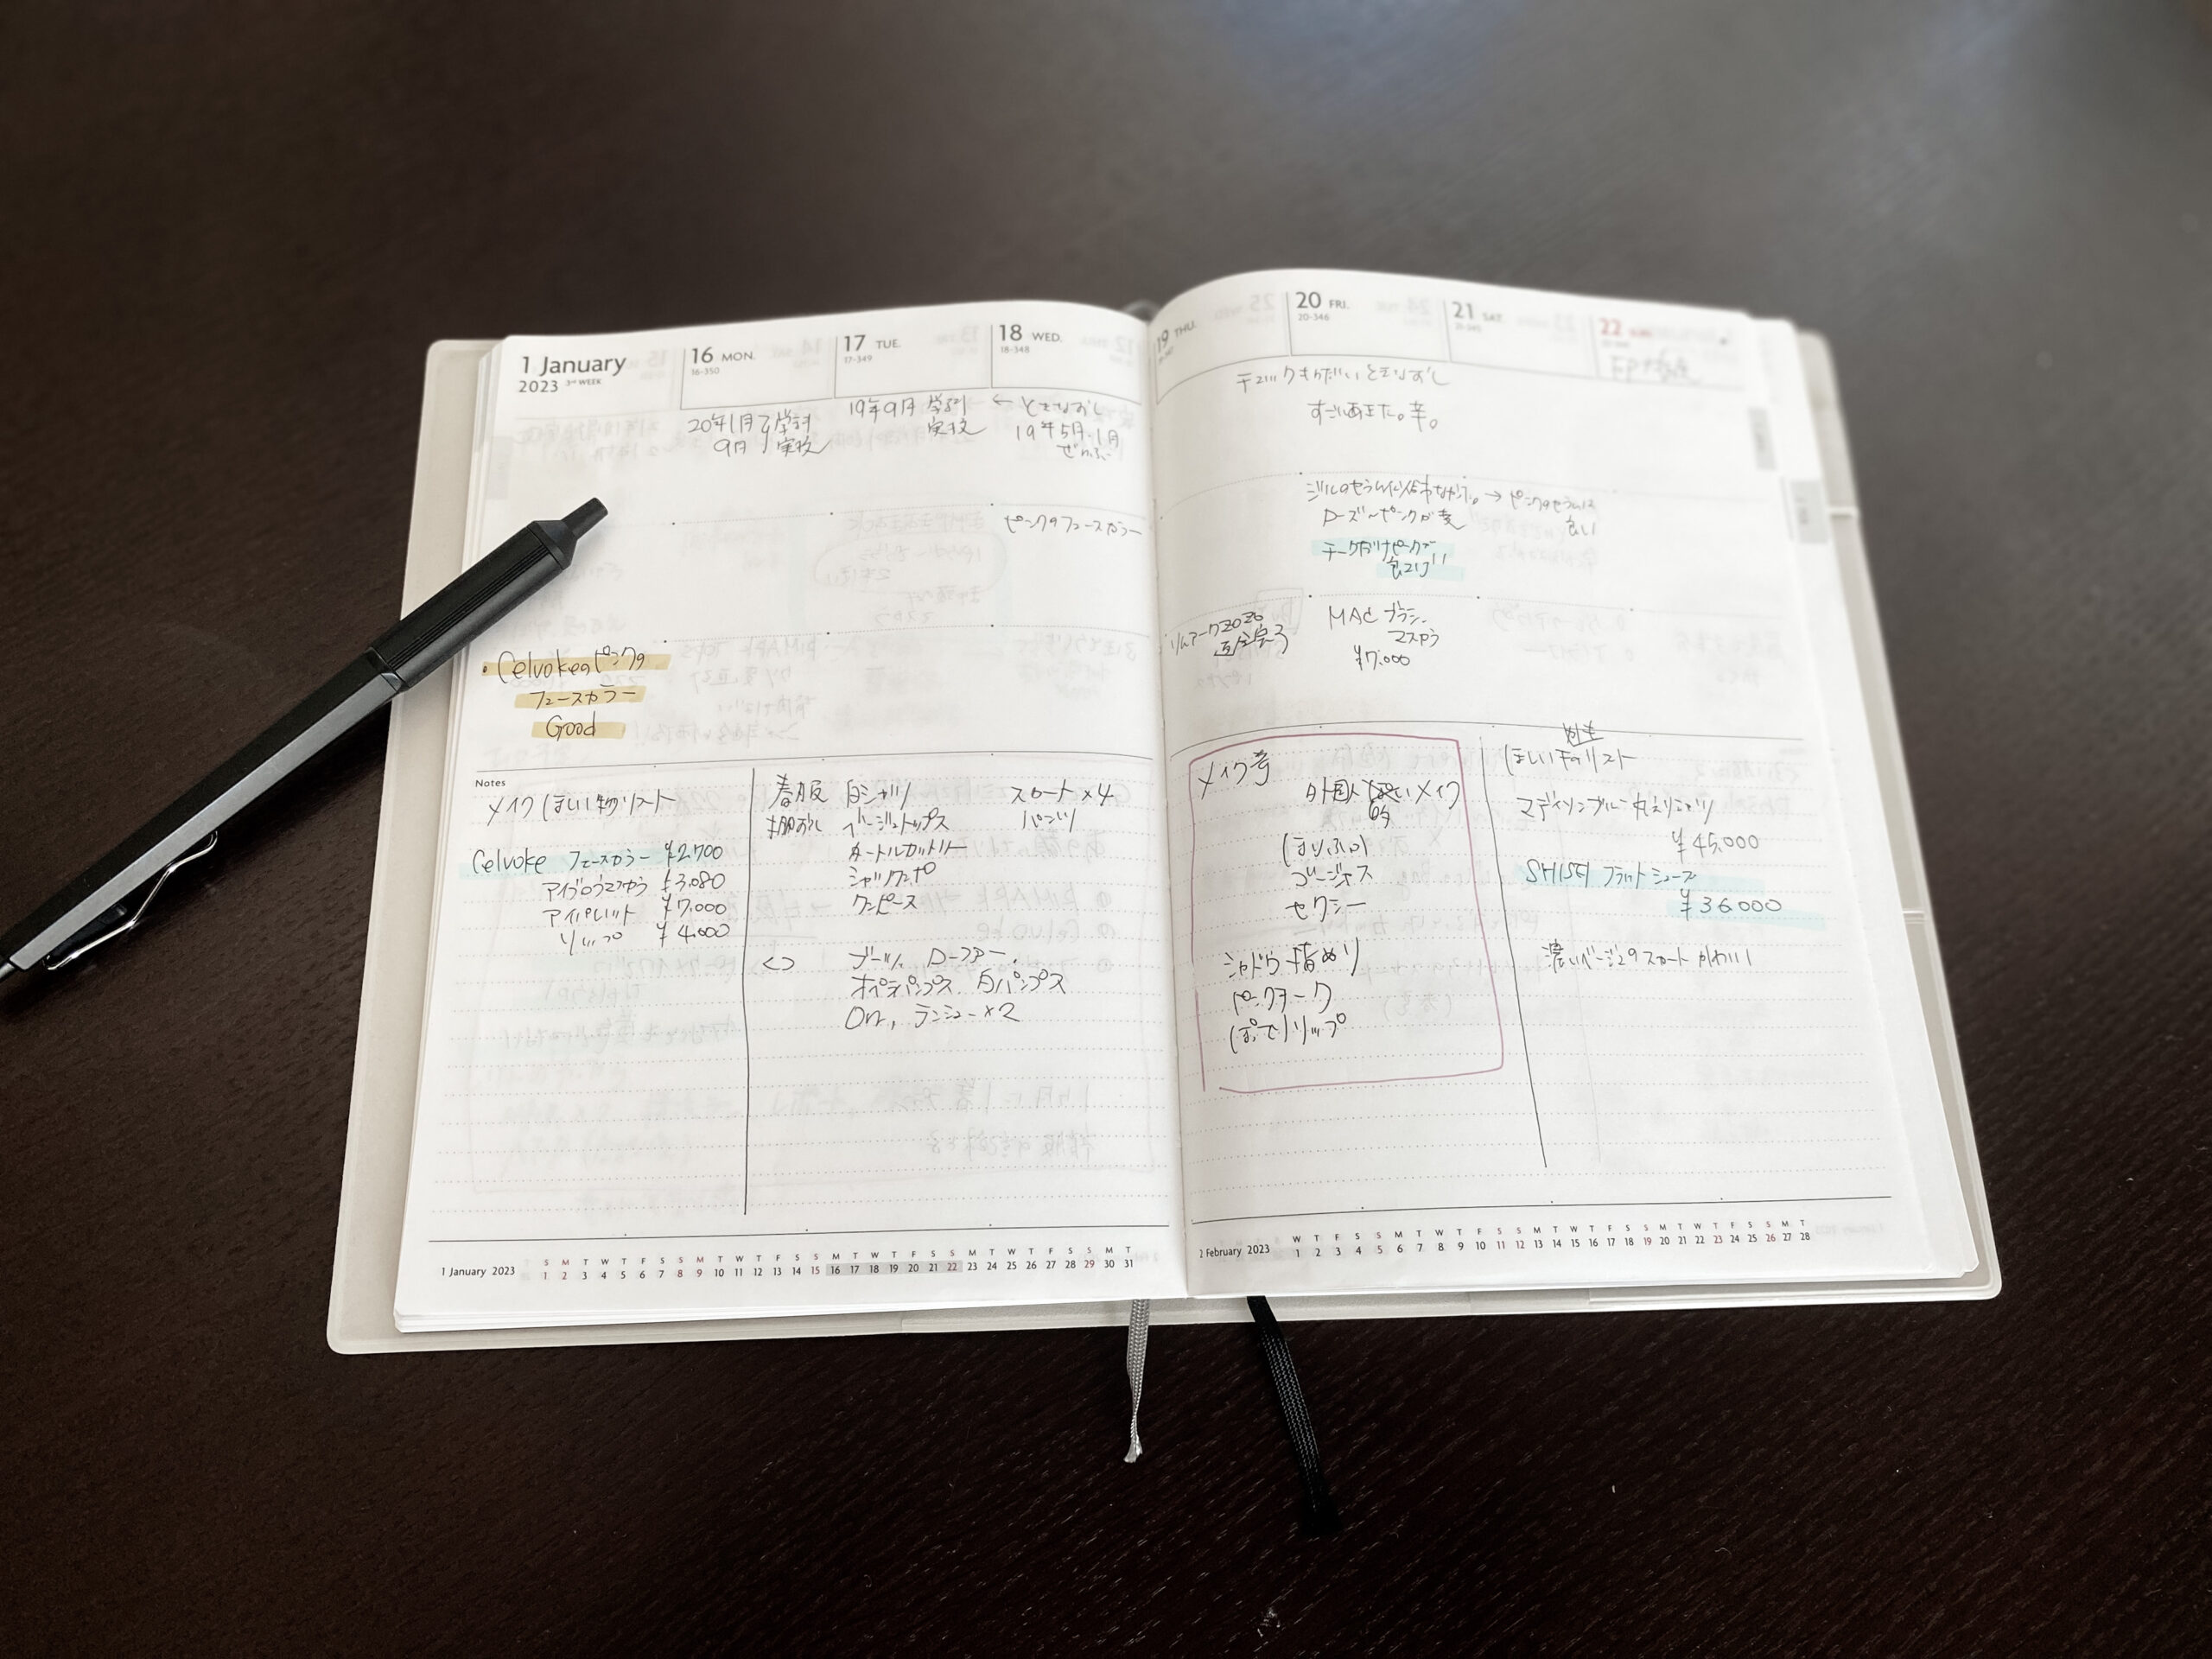 1 January
2023 3rd WEEK
16 MON.
16-350
17 TUE.
17-349
18 WED.
18-348
20年1月 学科
9月 実技
19年9月 学科
実技
← ときなおし
19年5月.1月
ぜんぶ
ピンクのフェースカラー
・Celvokeのピンクの
フェースカラー
Good
Notes
メイクほしい物リスト
Celvoke フェースカラー ¥2.700
アイブロウマスカラ ¥3.080
アイパレット ¥7.000
リップ ¥4.000
春服 白シャツ スカート×4
棚おろし ベージュトップス パンツ
タートルカットソー
シャツワンピ
ワンピース
<> ブーツ、ローファー、
オペラパンプス 白パンプス
On, ランシュー×2
1 January 2023
S M T W T F S S M T W T F S S M T W T F S S M T W T F S S M T
1 2 3 4 5 6 7 8 9 10 11 12 13 14 15 16 17 18 19 20 21 22 23 24 25 26 27 28 29 30 31
19 THU.
20 FRI.
20-346
21 SAT.
22 SUN.
ときなおし
すごいあきた。辛。
→ ピンクのセラムは
良い
ローズ〜ピンクが
チークだけピンクで
MAC ブラシ、
マスカラ
¥7.000
メイク
外国人 ぽい メイク
ゴージャス
セクシー
シャドウ 指ぬり
ピンクチーク
リップ
ほしいものリスト
マディソンブルー 丸えりシャツ
¥45.000
フラットシューズ
¥36.000
濃いベージュのスカート かわいい
2 February 2023
W T F S S M T W T F S S M T W T F S S M T W T F S S M T
1 2 3 4 5 6 7 8 9 10 11 12 13 14 15 16 17 18 19 20 21 22 23 24 25 26 27 28